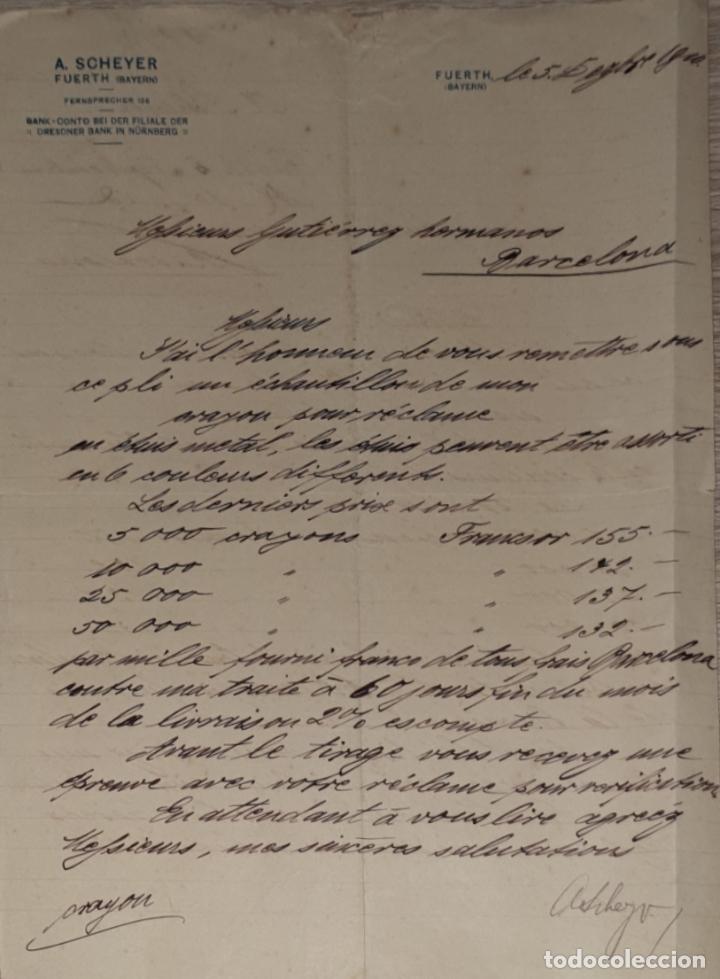 A. SCHEYER
FUERTH (BAYERN)
FERNSPRECHER 126
BANK-CONTO BEI DER FILIALE DER
DRESDNER BANK IN NÜRNBERG
FUERTH
(BAYERN)
le 5.
Messieurs Gutiérrez hermanos
Barcelona
Messieurs
J'ai l'honneur de vous remettre sous
ce pli un échantillon de mon
crayon pour réclame
en étuis metal, les étuis peuvent être assorti
en 6 couleurs differents.
Les derniers prix sont
5 000 crayons Francs or 155.-
10 000 " " 142.-
25 000 " " 137.-
50 000 " " 132.-
par mille fourni franco de tous frais Barcelona
contre ma traite à 60 jours fin du mois
de la livraison 2% escompte.
Avant le tirage vous recevez une
épreuve avec votre réclame pour verification
En attendant à vous lire agréez
Messieurs, mes sincères salutations
crayon
A Scheyer
todocoleccion
todocoleccion.net